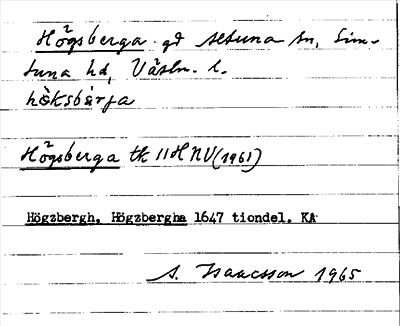 Högsberga gd Altuna sn, Sim-
tuna hd, Västm. l.
Högsberga tk 11H NV (1961)
Högzbergh, Högzbergha 1647 tiondel. KA
A. Isaacsson 1965